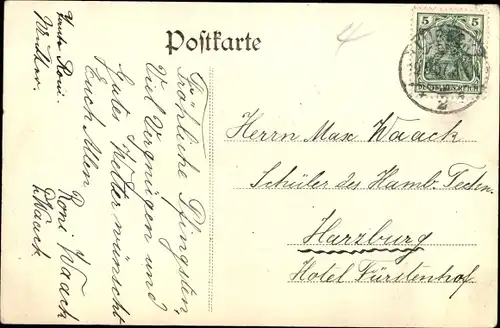 Postkarte
5 5
DEUTSCHES REICH
2
4
Herrn Max Waack
Schüler des Hamb. Techn.
Harzburg
Hotel Fürstenhof
Fröhliche Pfingsten,
Viel Vergnügen und
Gutes Wetter wünscht
Euch Allen
Roni Waack
Waack
Roni.
Mutter.